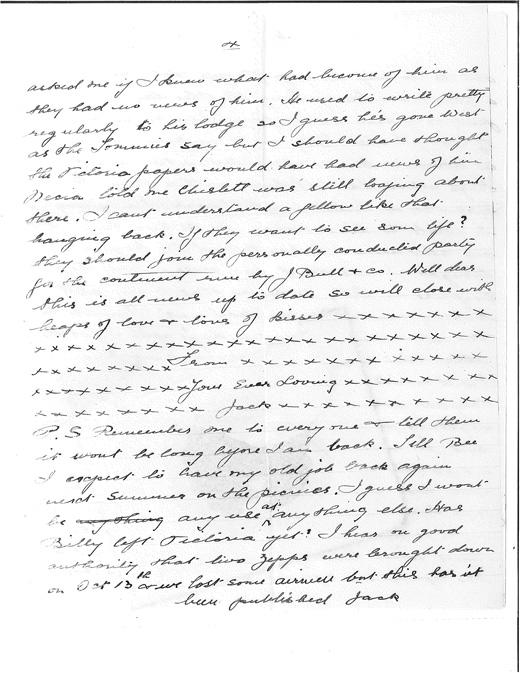 4
asked me if I knew what had become of him as
they had no news of him. He used to write pretty
regularly to his lodge so I guess hes gone West
as the Tommies say but I should have thought
the Victoria papers would have had news of him
told me Chislett was still loafing about
there. I cant understand a fellow like that
hanging back. If they want to see som life?
they should join the personally conducted party
for the continent run by J Bull & co. Well dear
this is all news up to date so will close with
heaps of love & tons of kisses x x x x x x x
x x x x x x x x x x x x x x x x x x x x
x x x x x x x x From x x x x x x x x x x x
x x x x x x x x x Your Ever Loving x x x x x x x
x x x x x x x x x Jack x x x x x x x x x x
P.S Remember me to everyone & tell them
it wont be long before I am back. Tell Bee
I expect to have my old job back again
next Summer on the picnics. I guess I wont
be anything any use at anything else. Has
Billy left Victoria yet? I hear on good
authority that two Zepps were brought down
on Oct 13th & we lost some airmen but this has'nt
been published Jack